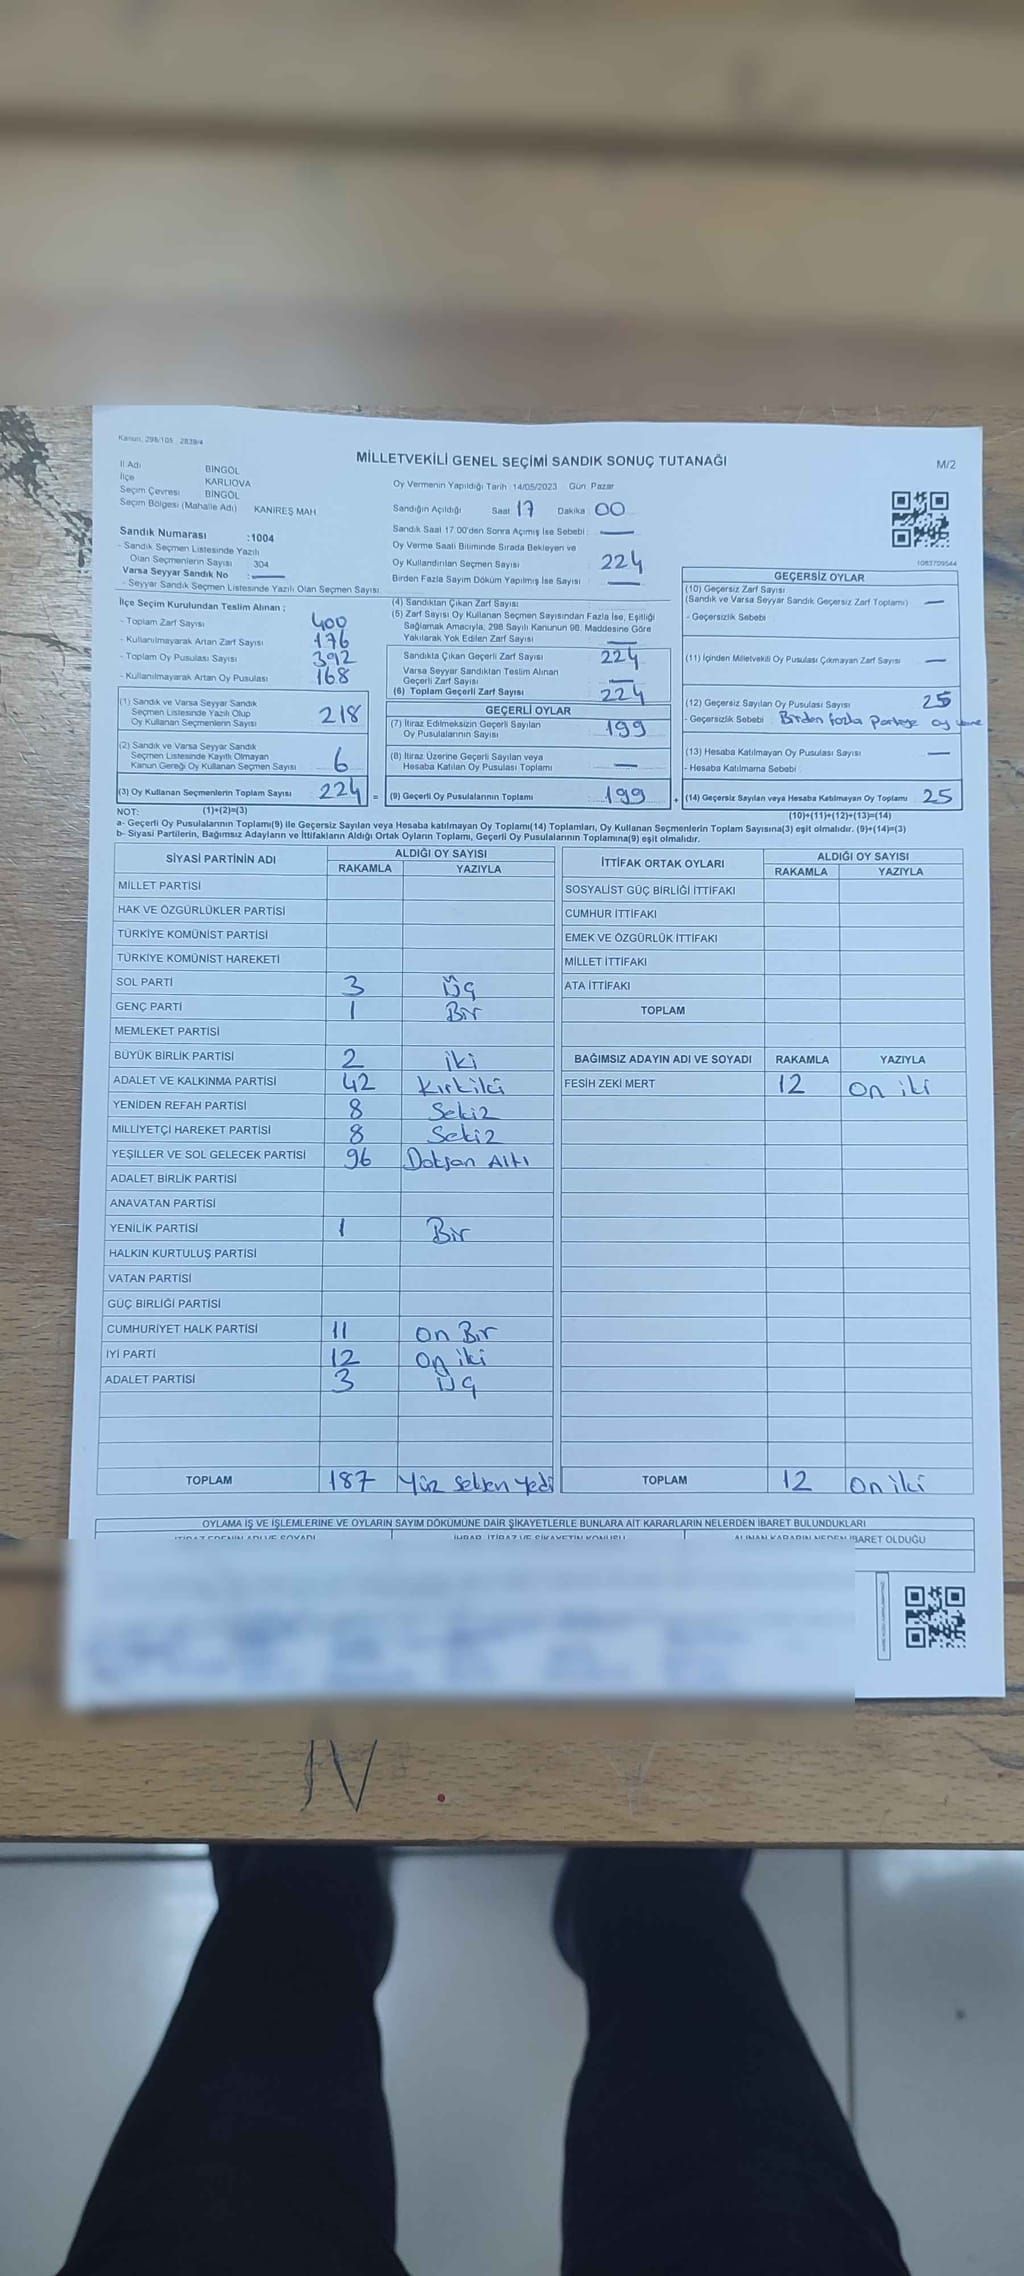 Kanun: 298/105 , 2839/4
MİLLETVEKİLİ GENEL SEÇİMİ SANDIK SONUÇ TUTANAĞI
M/2
İl Adı BİNGÖL
İlçe KARLIOVA
Seçim Çevresi BİNGÖL
Seçim Bölgesi (Mahalle Adı) KANİREŞ MAH
Sandık Numarası :1004
- Sandık Seçmen Listesinde Yazılı
Olan Seçmenlerin Sayısı 304
Varsa Seyyar Sandık No :
- Seyyar Sandık Seçmen Listesinde Yazılı Olan Seçmen Sayısı
Oy Vermenin Yapıldığı Tarih :14/05/2023 Gün: Pazar
Sandığın Açıldığı Saat 17 Dakika 00
Sandık Saat 17.00'den Sonra Açmış İse Sebebi
Oy Verme Saati Bitiminde Sırada Bekleyen ve
Oy Kullandırılan Seçmen Sayısı 224
Birden Fazla Sayım Döküm Yapılmış İse Sayısı
1083709544
İlçe Seçim Kurulundan Teslim Alınan ;
- Toplam Zarf Sayısı 400
- Kullanılmayarak Artan Zarf Sayısı 176
- Toplam Oy Pusulası Sayısı 392
- Kullanılmayarak Artan Oy Pusulası 168
(1) Sandık ve Varsa Seyyar Sandık
Seçmen Listesinde Yazılı Olup
Oy Kullanan Seçmenlerin Sayısı 218
(2) Sandık ve Varsa Seyyar Sandık
Seçmen Listesinde Kayıtlı Olmayan
Kanun Gereği Oy Kullanan Seçmen Sayısı 6
(3) Oy Kullanan Seçmenlerin Toplam Sayısı 224 =
(4) Sandıktan Çıkan Zarf Sayısı
(5) Zarf Sayısı Oy Kullanan Seçmen Sayısından Fazla İse, Eşitliği
Sağlamak Amacıyla, 298 Sayılı Kanunun 98. Maddesine Göre
Yakılarak Yok Edilen Zarf Sayısı
Sandıkta Çıkan Geçerli Zarf Sayısı 224
Varsa Seyyar Sandıktan Teslim Alınan
Geçerli Zarf Sayısı
(6) Toplam Geçerli Zarf Sayısı 224
GEÇERLİ OYLAR
(7) İtiraz Edilmeksizin Geçerli Sayılan
Oy Pusulalarının Sayısı 199
(8) İtiraz Üzerine Geçerli Sayılan veya
Hesaba Katılan Oy Pusulası Toplamı
(9) Geçerli Oy Pusulalarının Toplamı 199 +
GEÇERSİZ OYLAR
(10) Geçersiz Zarf Sayısı
(Sandık ve Varsa Seyyar Sandık Geçersiz Zarf Toplamı)
- Geçersizlik Sebebi
(11) İçinden Milletvekili Oy Pusulası Çıkmayan Zarf Sayısı
(12) Geçersiz Sayılan Oy Pusulası Sayısı 25
- Geçersizlik Sebebi : Birden fazla Partiye oy
(13) Hesaba Katılmayan Oy Pusulası Sayısı
- Hesaba Katılmama Sebebi
(14) Geçersiz Sayılan veya Hesaba Katılmayan Oy Toplamı 25
NOT: (1)+(2)=(3)
(10)+(11)+(12)+(13)=(14)
a- Geçerli Oy Pusulalarının Toplamı(9) ile Geçersiz Sayılan veya Hesaba katılmayan Oy Toplamı(14) Toplamları, Oy Kullanan Seçmenlerin Toplam Sayısına(3) eşit olmalıdır. (9)+(14)=(3)
b- Siyasi Partilerin, Bağımsız Adayların ve İttifakların Aldığı Ortak Oyların Toplamı, Geçerli Oy Pusulalarının Toplamına(9) eşit olmalıdır.
SİYASİ PARTİNİN ADI ALDIĞI OY SAYISI
RAKAMLA YAZIYLA
MİLLET PARTİSİ
HAK VE ÖZGÜRLÜKLER PARTİSİ
TÜRKİYE KOMÜNİST PARTİSİ
TÜRKİYE KOMÜNİST HAREKETİ
SOL PARTİ 3 Üç
GENÇ PARTİ 1 Bir
MEMLEKET PARTİSİ
BÜYÜK BİRLİK PARTİSİ 2 iki
ADALET VE KALKINMA PARTİSİ 42 Kırkiki
YENİDEN REFAH PARTİSİ 8 Sekiz
MİLLİYETÇİ HAREKET PARTİSİ 8 Sekiz
YEŞİLLER VE SOL GELECEK PARTİSİ 96 Doksan Altı
ADALET BİRLİK PARTİSİ
ANAVATAN PARTİSİ
YENİLİK PARTİSİ 1 Bir
HALKIN KURTULUŞ PARTİSİ
VATAN PARTİSİ
GÜÇ BİRLİĞİ PARTİSİ
CUMHURİYET HALK PARTİSİ 11 on Bir
İYİ PARTİ 12 on iki
ADALET PARTİSİ 3 Üç
TOPLAM 187 Yüz Seksen Yedi
İTTİFAK ORTAK OYLARI ALDIĞI OY SAYISI
RAKAMLA YAZIYLA
SOSYALİST GÜÇ BİRLİĞİ İTTİFAKI
CUMHUR İTTİFAKI
EMEK VE ÖZGÜRLÜK İTTİFAKI
MİLLET İTTİFAKI
ATA İTTİFAKI
TOPLAM
BAĞIMSIZ ADAYIN ADI VE SOYADI RAKAMLA YAZIYLA
FESİH ZEKİ MERT 12 on iki
TOPLAM 12 on iki
OYLAMA İŞ VE İŞLEMLERİNE VE OYLARIN SAYIM DÖKÜMÜNE DAİR ŞİKAYETLERLE BUNLARA AİT KARARLARIN NELERDEN İBARET BULUNDUKLARI
İTİRAZ EDENİN ADI VE SOYADI İHBAR, İTİRAZ VE ŞİKAYETİN KONUSU ALINAN KARARIN NEDEN İBARET OLDUĞU